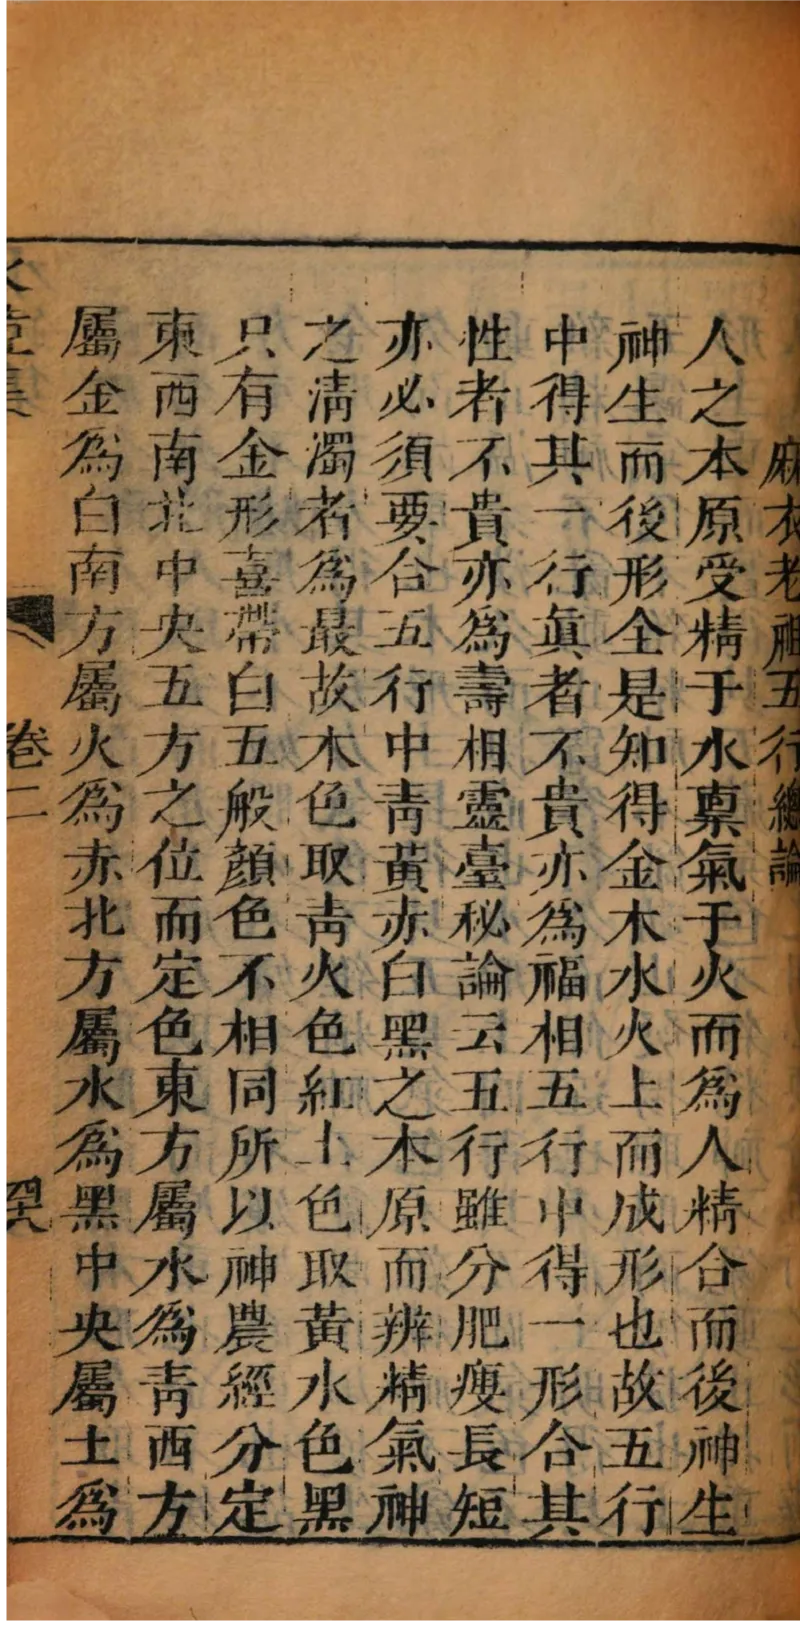 麻衣老祖五行總論
人之本原受精于水稟氣于火而為人精合而後神生
神生而後形全是知得金木水火土而成形也故五行
中得其一行眞者不貴亦為福相五行中得一形合其
性者不貴亦為壽相靈臺秘論云五行雖分肥瘦長短
亦必須要合五行中青黃赤白黑之本原而辨精氣神
之清濁者為最故木色取青火色紅土色取黃水色黑
只有金形喜帶白五般顏色不相同所以神農經分定
東西南北中央五方之位而定色東方屬水為青西方
屬金為白南方屬火為赤北方屬水為黑中央屬土為
集
卷二